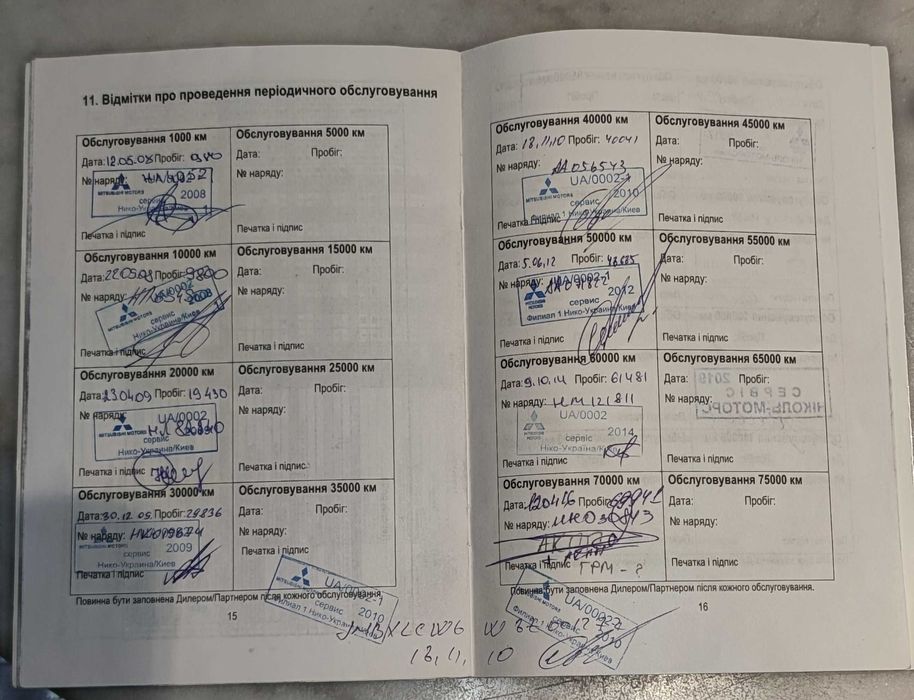 11. Відмітки про проведення періодичного обслуговування
Обслуговування 1000 км
Дата: 12.05.08 Пробіг: 980
№ наряду:
MITSUBISHI MOTORS
2008
сервис
Нико-Украина/Киев
Печатка і підпис
Обслуговування 5000 км
Дата: Пробіг:
№ наряду:
Печатка і підпис
Обслуговування 10000 км
Дата: 22.05.08 Пробіг: 9800
№ наряду:
UA/0002
MITSUBISHI MOTORS
2008
сервис
Нико-Украина/Киев
Печатка і підпис
Обслуговування 15000 км
Дата: Пробіг:
№ наряду:
Печатка і підпис
Обслуговування 20000 км
Дата: 230409 Пробіг: 19430
№ наряду:
UA/0002
MITSUBISHI MOTORS
сервис
Нико-Украина/Киев
Печатка і підпис
Обслуговування 25000 км
Дата: Пробіг:
№ наряду:
Печатка і підпис
Обслуговування 30000 км
Дата: 30.12.09 Пробіг: 29836
№ наряду:
MITSUBISHI MOTORS
сервис 2009
Нико-Украина/Киев
Печатка і підпис
Обслуговування 35000 км
Дата: Пробіг:
№ наряду:
Печатка і підпис
UA/0002-1
MITSUBISHI MOTORS
2010
сервис
Филиал 1 Нико-Украина/Киев
Повинна бути заповнена Дилером/Партнером після кожного обслуговування.
15
13.11.10
Обслуговування 40000 км
Дата: 18.11.10 Пробіг: 40041
№ наряду: АА056543
UA/0002-1
MITSUBISHI MOTORS
2010
сервис
Филиал 1 Нико-Украина/Киев
Печатка і підпис
Обслуговування 45000 км
Дата: Пробіг:
№ наряду:
Печатка і підпис
Обслуговування 50000 км
Дата: 5.06.12 Пробіг: 48685
№ наряду:
UA/0002-1
2012
сервис
Филиал 1 Нико-Украина/Киев
Печатка і підпис
Обслуговування 55000 км
Дата: Пробіг:
№ наряду:
Печатка і підпис
Обслуговування 60000 км
Дата: 9.10.14 Пробіг: 61481
№ наряду: НМ121811
UA/0002
MITSUBISHI MOTORS
2014
сервіс
Ніко-Україна/Київ
Печатка і підпис
Обслуговування 65000 км
Дата: Пробіг:
№ наряду:
2019
СЕРВІС
НІКОЛЬ-МОТОРС
Печатка і підпис
Обслуговування 70000 км
Дата: 120416 Пробіг:
№ наряду: НК030843
Печатка і підпис ГРМ - ?
Обслуговування 75000 км
Дата: Пробіг:
№ наряду:
Печатка і підпис
UA/0002-1
MITSUBISHI MOTORS
2010
сервис
Филиал 1 Нико-Украина/Киев
Повинна бути заповнена Дилером/Партнером після кожного обслуговування.
16